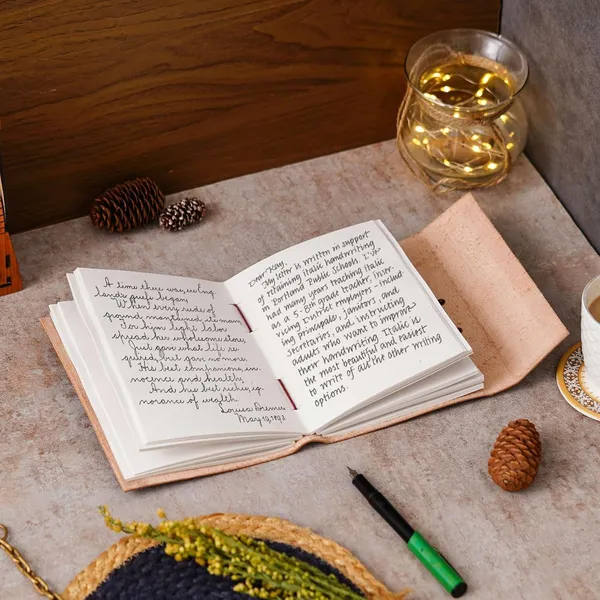 A time there was, ere Eng,
land's griefs began,
When every rood of
ground maintained its man;
For him light labor
spread her wholesome store,
Just gave what life re,
quired, but gave no more.
His best companions, in,
nocence and health;
And his best riches, ig,
norance of wealth.
Louisa
May 19, 1893
Dear Kay,
My letter is written in support
of retaining italic handwriting
in Portland Public Schools. I've
had many years teaching italic
as a 5-8th grade teacher, ser-
vicing District employees, includ-
ing principals, janitors, and
secretaries, and instructing
adults who want to improve
their handwriting. Italic is
the most beautiful and easiest
to write of all the other writing
options.